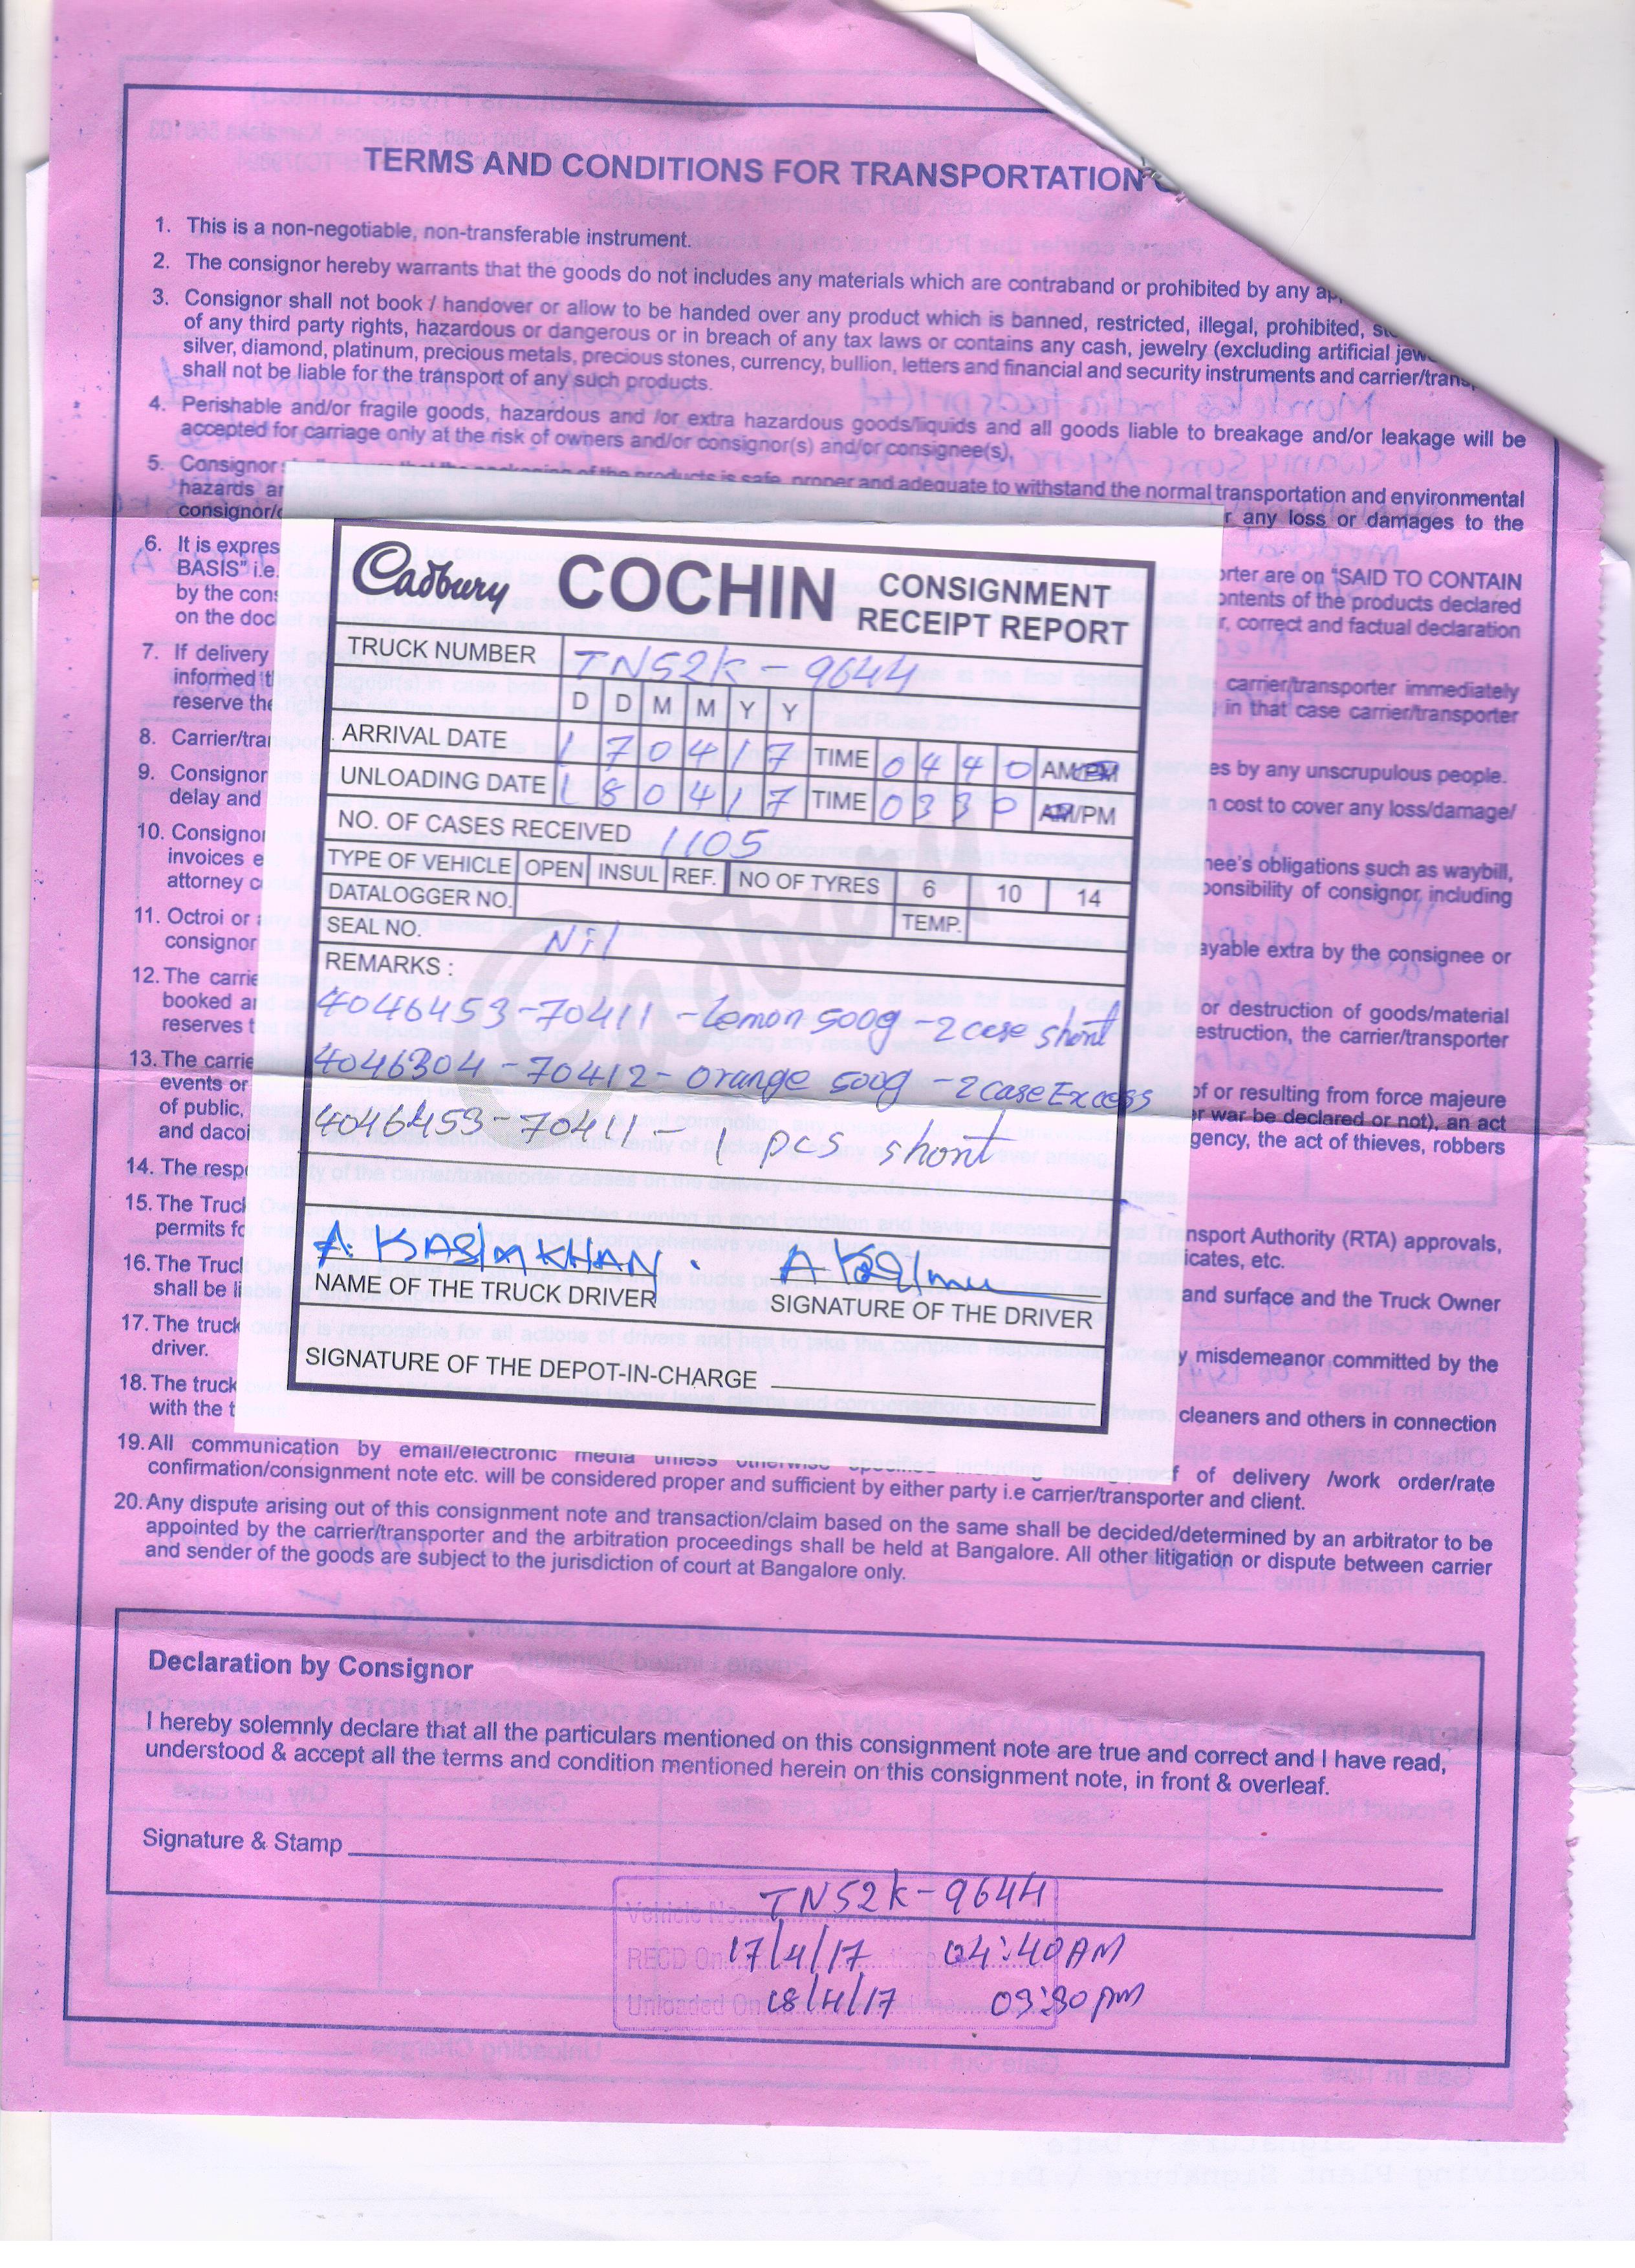 TERMS AND CONDITIONS FOR TRANSPORTATION
1. This is a non-negotiable, non-transferable instrument.
2. The consignor hereby warrants that the goods do not includes any materials which are contraband or prohibited by any
3. Consignor shall not book / handover or allow to be handed over any product which is banned, restricted, illegal, prohibited,
of any third party rights, hazardous or dangerous or in breach of any tax laws or contains any cash, jewelry (excluding artificial
silver, diamond, platinum, precious metals, precious stones, currency, bullion, letters and financial and security instruments and
shall not be liable for the transport of any such products.
4. Perishable and/or fragile goods, hazardous and /or extra hazardous goods/liquids and all goods liable to breakage and/or leakage will be
accepted for carriage only at the risk of owners and/or consignor(s) and/or consignee(s).
5. Consignor of the products is safe, proper and adequate to withstand the normal transportation and environmental
hazards any loss or damages to the
6. It is
BASIS" i.e. are on "SAID TO CONTAIN
by the of the products declared
on the correct and factual declaration
7. If delivery
informed carrier/transporter immediately
reserve the in that case carrier/transporter
8. by any unscrupulous people.
9. Consignor
delay and cost to cover any loss/damage/
10. Consignor
invoices obligations such as waybill,
attorney of consignor, including
11. Octroi or
consignor extra by the consignee or
12. The
booked or destruction of goods/material
reserves the carrier/transporter
13. The
events or of or resulting from force majeure
of public, war be declared or not), an act
and the act of thieves, robbers
14. The
15. The
permits Authority (RTA) approvals,
etc.
16. The
shall be and surface and the Truck Owner
17. The truck
driver. misdemeanor committed by the
18. The truck
with the cleaners and others in connection
19. All communication by email/electronic media unless otherwise specified of delivery /work order/rate
confirmation/consignment note etc. will be considered proper and sufficient by either party i.e carrier/transporter and client.
20. Any dispute arising out of this consignment note and transaction/claim based on the same shall be decided/determined by an arbitrator to be
appointed by the carrier/transporter and the arbitration proceedings shall be held at Bangalore. All other litigation or dispute between carrier
and sender of the goods are subject to the jurisdiction of court at Bangalore only.
Cadbury COCHIN CONSIGNMENT
RECEIPT REPORT
TRUCK NUMBER TN52K-9644
D D M M Y Y
ARRIVAL DATE 1 7 0 4 1 7 TIME 0 4 4 0 AM/PM
UNLOADING DATE 1 8 0 4 1 7 TIME 0 3 3 0 AM/PM
NO. OF CASES RECEIVED 1105
TYPE OF VEHICLE OPEN INSUL REF. NO OF TYRES 6 10 14
DATALOGGER NO. TEMP.
SEAL NO. Nil
REMARKS :
4046453-70411-Lemon 500g-2case short
4046304-70412-orange 500g-2caseExcess
4046453-70411- 1 pcs short
A. KASIM KHAN.
NAME OF THE TRUCK DRIVER
SIGNATURE OF THE DRIVER
SIGNATURE OF THE DEPOT-IN-CHARGE
Declaration by Consignor
I hereby solemnly declare that all the particulars mentioned on this consignment note are true and correct and I have read,
understood & accept all the terms and condition mentioned herein on this consignment note, in front & overleaf.
Signature & Stamp
Vehicle No. TN52K-9644
RECD On 17/4/17 time 04:40AM
Unloaded On 18/4/17 time 03:30pm